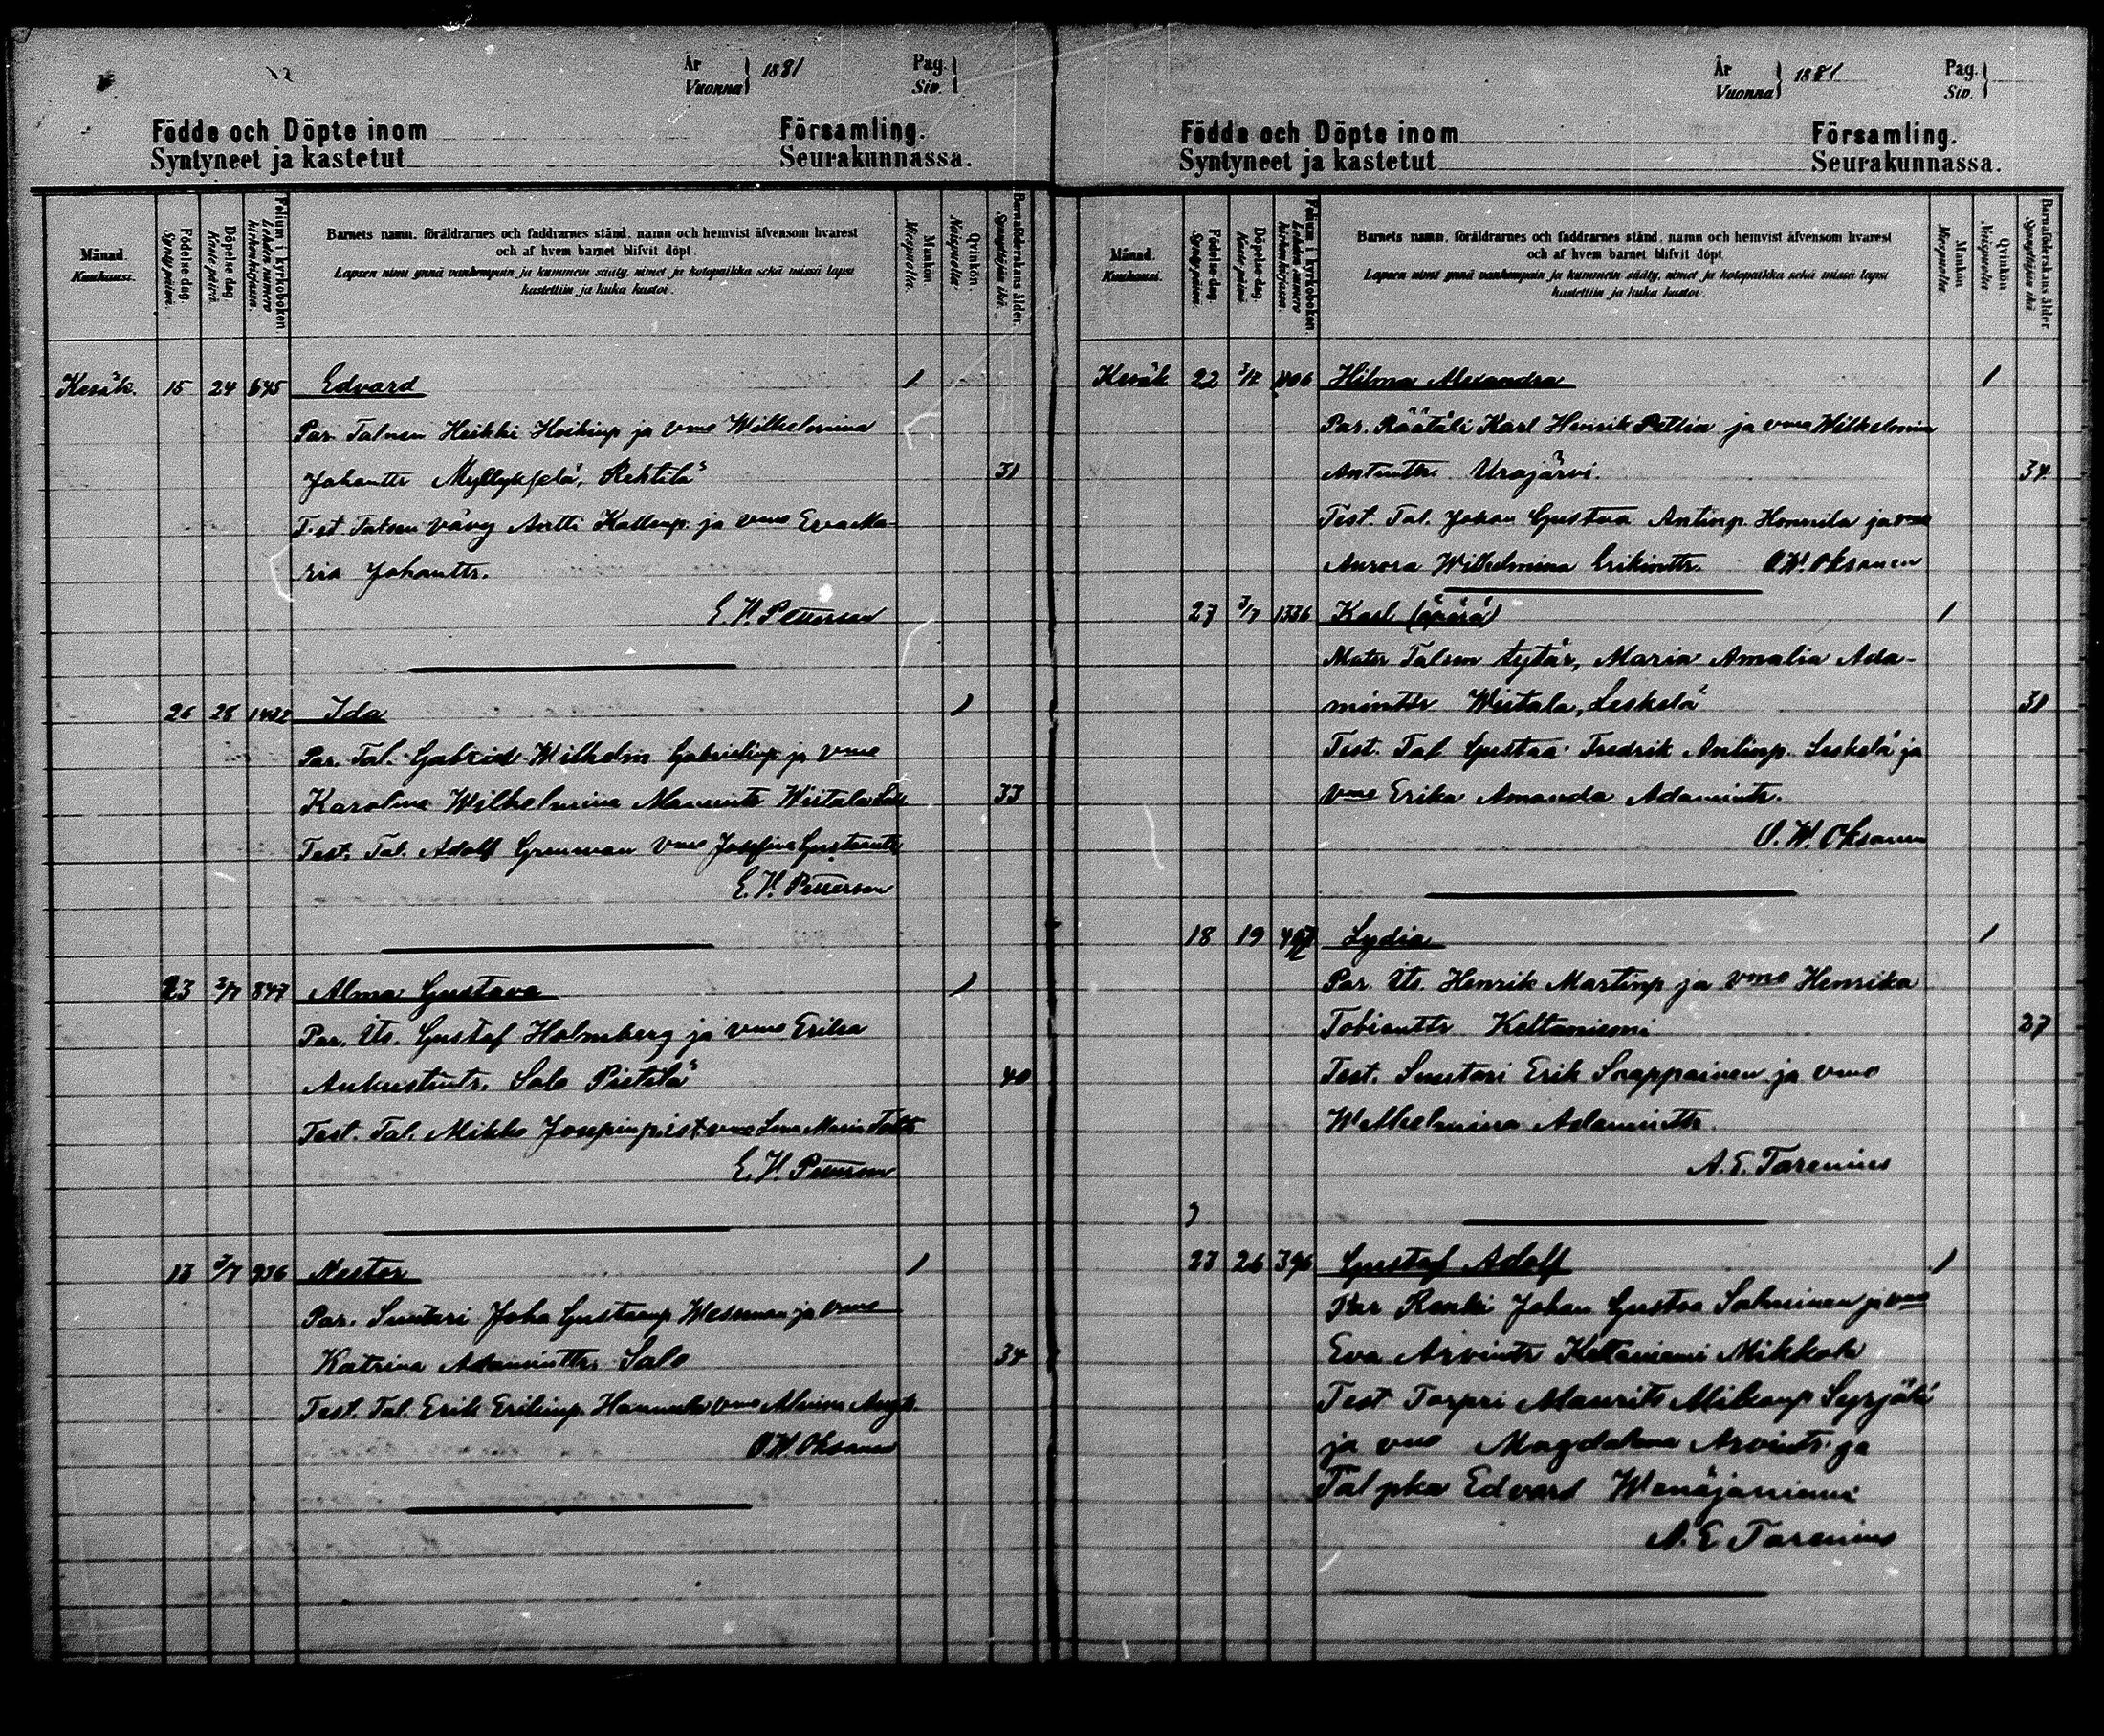 År
Vuonna } 1881
Pag.
Siv. }
Födde och Döpte inom Församling.
Syntyneet ja kastetut Seurakunnassa.
Månad.
Kuukausi.
Födelse dag.
Syntypäivä.
Döpelse dag.
Kastepäivä.
Folium i kyrkoboken.
Lehden numero kirkonkirjassa.
Barnets namn, föräldrarnes och faddrarnes stånd, namn och hemvist äfvensom hvarest
och af hvem barnet blifvit döpt.
Lapsen nimi ynnä vanhempain ja kummein sääty, nimet ja kotopaikka sekä missä lapsi
kastettiin ja kuka kastoi.
Mankön
Miespuolia.
Qvinkön
Naispuolia.
Barnaföderskans ålder.
Synnyttäjän ikä.
Kesäk. 15 24 645 Edvard 1
Par. Talnen Heikki Heikinp ja vmo Wilhelmina
Johantr Myllykylä, Rehtilä 31
Test Talnen vävy Antti Kallenp. ja vmo Eva Ma
ria Johanttr.
E. W. Petterson
26 28 1432 Ida 1
Par. Tal. Gabriel Wilhelm Gabrielinp ja vmo
Karolina Wilhelmina Wiitala 33
Test. Tal. Adolf vmo Josefina
E. W. Petterson
23 3/7 847 Alma Gustava 1
Par. Its. Gustaf Holmberg ja vmo Erika
Aukustintr. Salo Pietilä 40
Test. Tal. Mikko vmo Lena Maria
E. W. Petterson
13 3/7 936 Nestor 1
Par. Suutari Joha Gustavp Wessman ja vmo
Katrina Adaminttr. Salo 34
Test. Tal. Erik Erikinp. Hannula vmo
O. W. Oksanen
År
Vuonna } 1881
Pag.
Siv. }
Födde och Döpte inom Församling.
Syntyneet ja kastetut Seurakunnassa.
Månad.
Kuukausi.
Födelse dag.
Syntypäivä.
Döpelse dag.
Kastepäivä.
Folium i kyrkoboken.
Lehden numero kirkonkirjassa.
Barnets namn, föräldrarnes och faddrarnes stånd, namn och hemvist äfvensom hvarest
och af hvem barnet blifvit döpt
Lapsen nimi ynnä vanhempain ja kummein sääty, nimet ja kotopaikka sekä missä lapsi
kastettiin ja kuka kastoi.
Mankön
Miespuolia.
Qvinkön.
Naispuolia.
Barnaföderskans ålder
Synnyttäjän ikä.
Kesäk 22 Hilma Alexandra 1
Par. Räätäli Karl Henrik ja vmo Wilhelmina
Antinttr. Urajärvi. 34
Test. Tal. Johan Gustaa Antinp. Honnila ja vmo
Aurora Wilhelmina Erikinttr. O. W. Oksanen
27 3/7 1336 Karl (äpärä) 1
Mater Talnen tytär, Maria Amalia Ada-
minttr Wiitala, Leskelä 31
Test. Tal Gustaa Fredrik Antinp. Leskelä ja
vmo Erika Amanda Adamintr.
O. W. Oksanen
18 19 Lydia 1
Par. Its. Henrik Martinp ja vmo Henrika
Tobianttr Keltaniemi 27
Test. Suutari Erik Saappainen ja vmo
Wilhelmina Adaminttr.
A. E. Torenius
23 26 396 Gustaf Adolf 1
Par Renki Johan Gustaa Salminen ja vmo
Eva Arvintr Keltaniemi Mikkola
Test Torpri Maurits Mikonp Syrjälä
ja vmo Magdalena Arvintr. ja
Tal pka Edvard
A. E Torenius